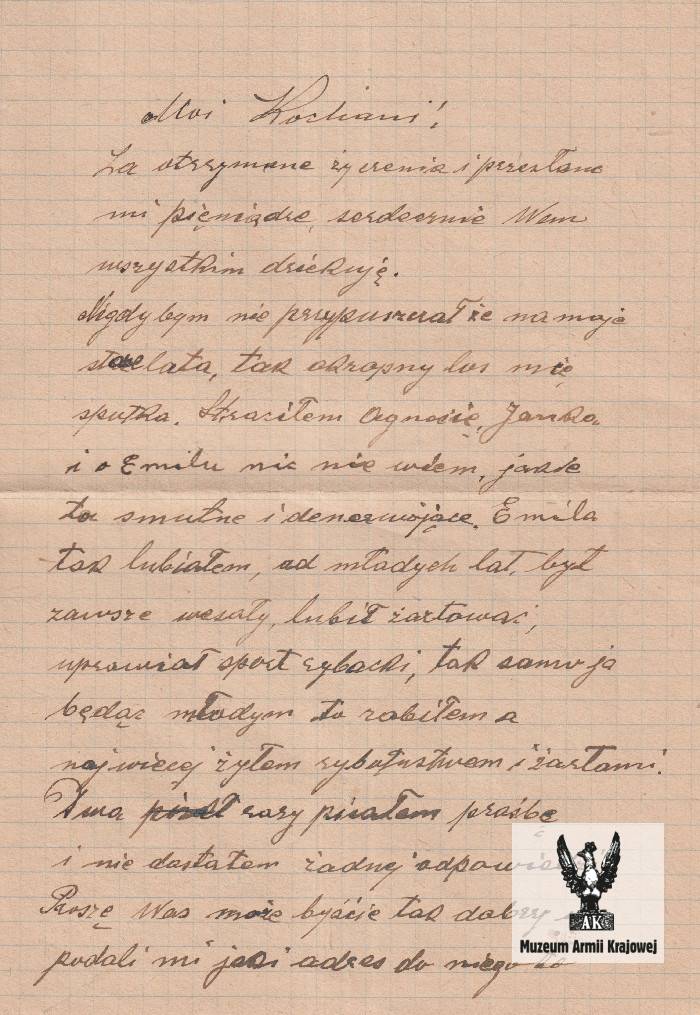 Moi Kochani!
Za otrzymane życzenia i przesłane
mi pięniądze, serdecznie Wam
wszystkim dziekuję.
Nigdy bym nie przypuszczał że na moje
stare lata, tak okropny los mię
spotka. Straciłem Agnosię, Janka
i o Emilu nic nie wiem, jakie
to smutne i denerwojące. Emila
tak lubiałem, od młodych lat, był
zawsze wesoły, lubił żartować,
uprawiał sport rybacki, tak samo ja
będąc młodym to robiłem a
najwiecej żyłem rybołustwem i żartami.
Dwa razy pisałem prośbę
i nie dostałem żadnej
Proszę Was może byjście tak
podali mi jaki adres do niego
AK
Muzeum Armii Krajowej